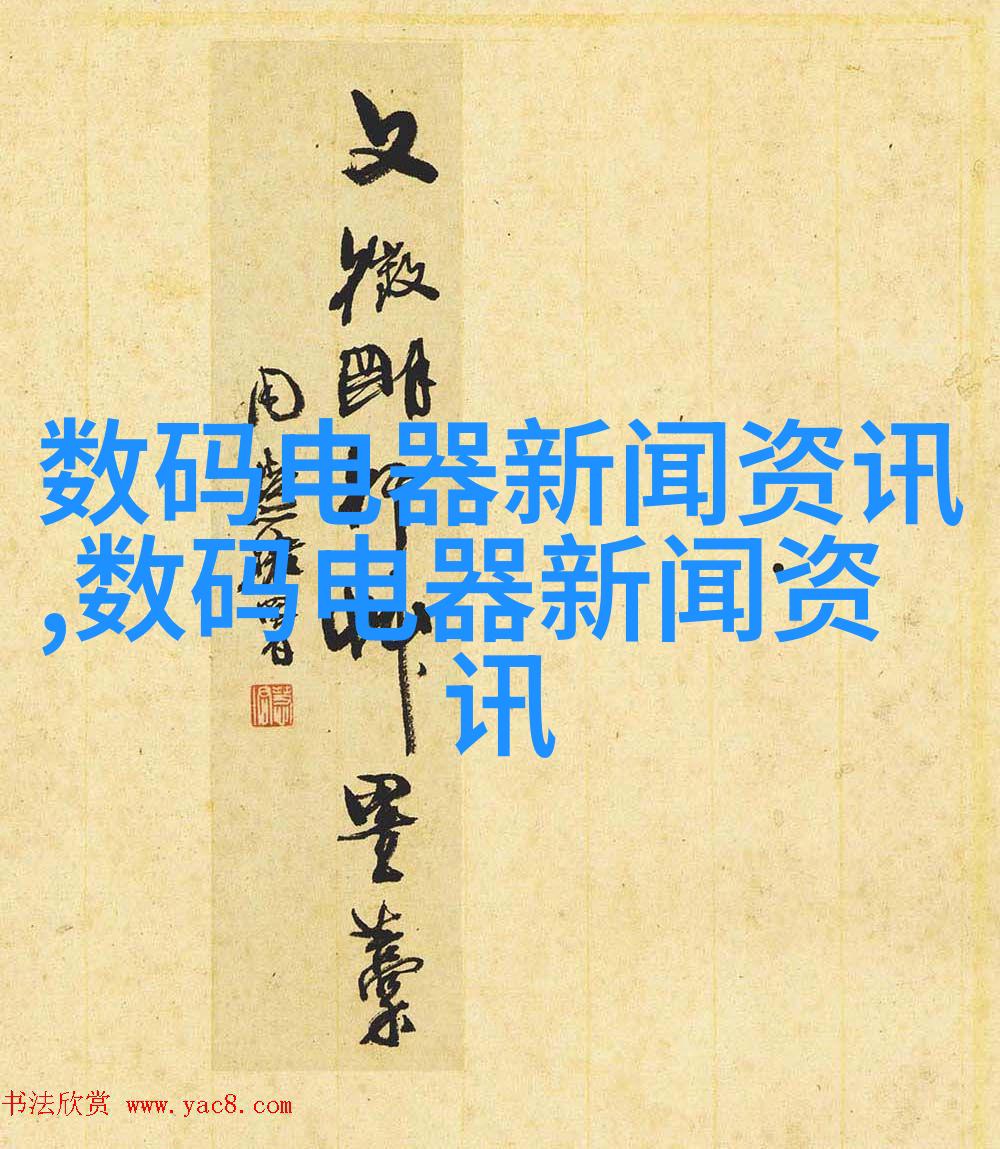 数码电器新闻资讯
,数码电器新闻资
讯
文徵明
墨藁
书法欣赏 www.yac8.com